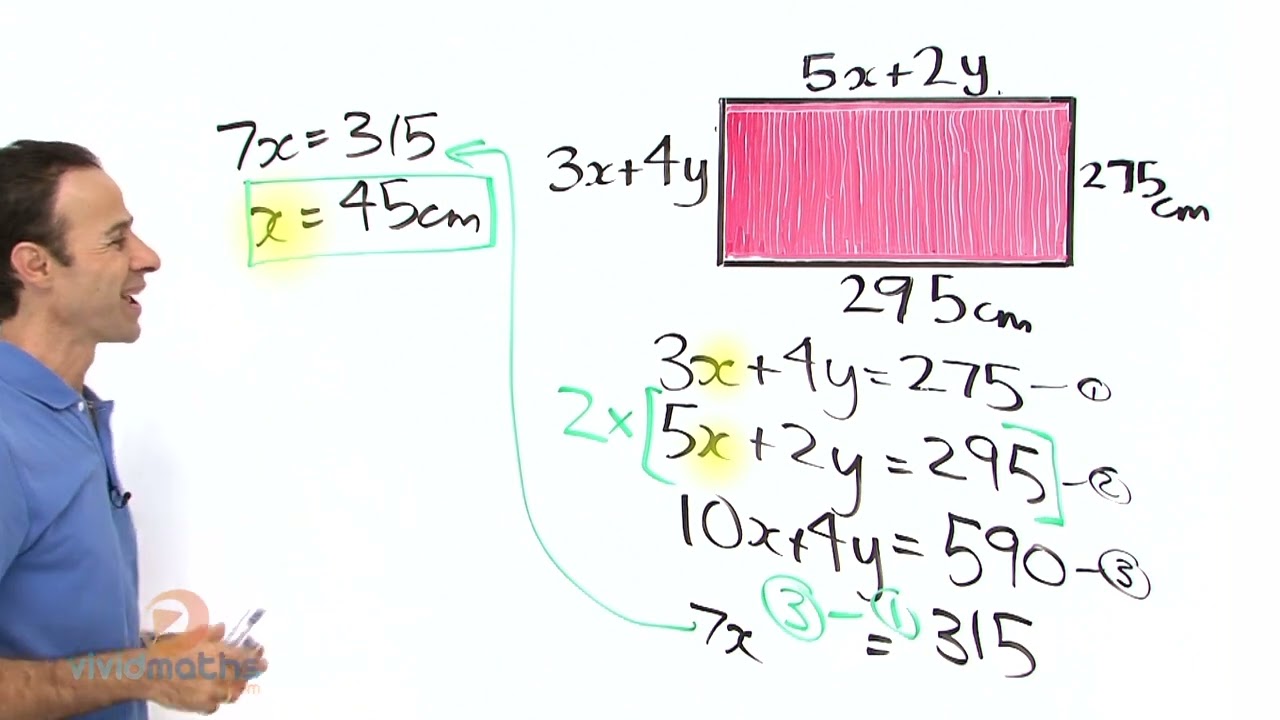 7x = 315
x = 45cm
5x + 2y
3x + 4y
275
cm
295cm
3x + 4y = 275 - ①
2x [5x + 2y = 295] - ②
10x + 4y = 590 - ③
③ - ①
7x = 315
vividmaths
.com